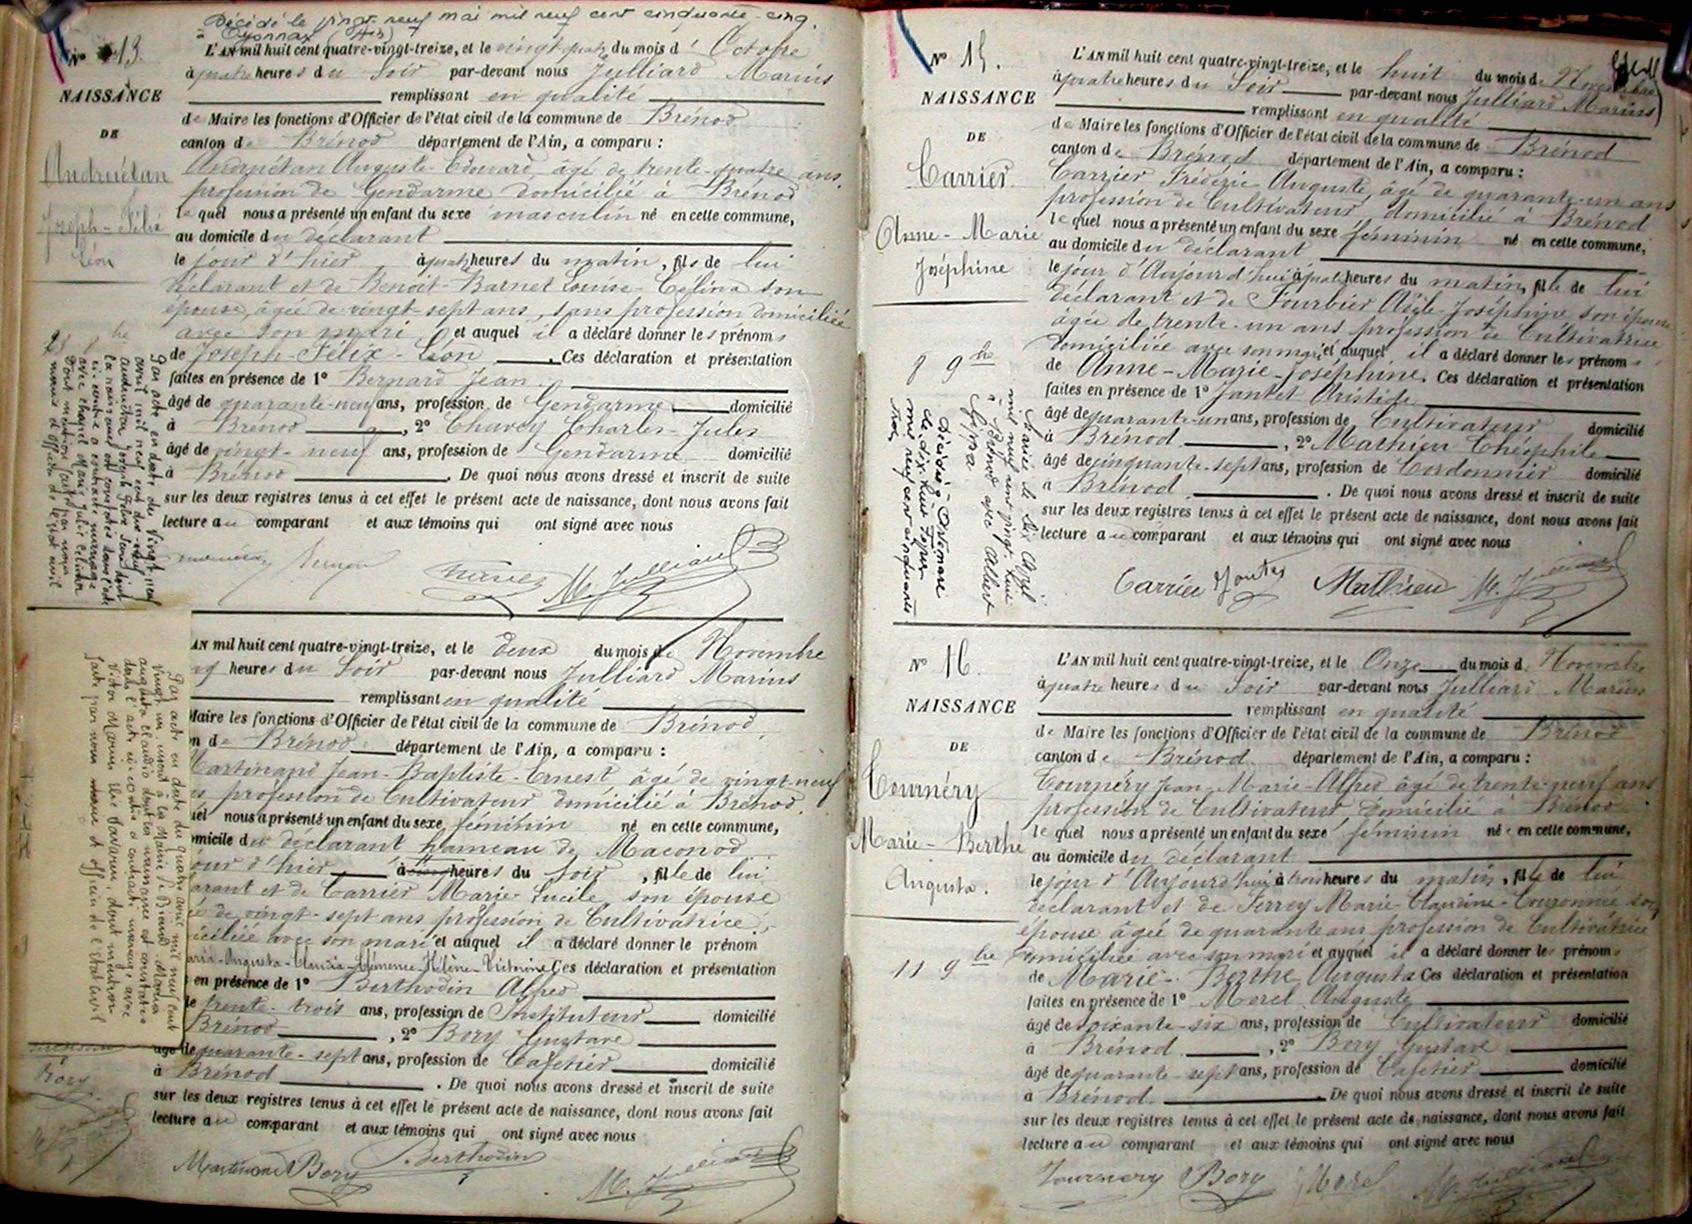 Décédé le vingt neuf mai mil neuf cent cinquante-cinq.
à Oyonnax (Ain)
N° 13.
NAISSANCE
DE
Andruétan
Joseph-Félix
Léon
L'AN mil huit cent quatre-vingt-treize, et le vingt quatre du mois d' Octobre
à quatre heures du Soir par-devant nous Julliard Marius
remplissant en qualité
de Maire les fonctions d'Officier de l'état civil de la commune de Brénod
canton de Brénod département de l'Ain, a comparu :
Andruétan Auguste Edouard, âgé de trente-quatre ans,
profession de Gendarme domicilié à Brénod
lequel nous a présenté un enfant du sexe masculin né en cette commune,
au domicile du déclarant
le jour d'hier à quatre heures du matin, fils de lui
déclarant et de Benoit-Barnet Louise-Célina son
épouse, âgée de vingt-sept ans, sans profession domiciliée
avec son mari et auquel il a déclaré donner les prénoms
de Joseph-Félix-Léon. Ces déclaration et présentation
faites en présence de 1° Bernard Jean
âgé de quarante-neuf ans, profession de Gendarme domicilié
à Brénod, 2° Charles-Jules
âgé de vingt-neuf ans, profession de Gendarme domicilié
à Brénod. De quoi nous avons dressé et inscrit de suite
sur les deux registres tenus à cet effet le présent acte de naissance, dont nous avons fait
lecture au comparant et aux témoins qui ont signé avec nous
M. Julliard
Par acte en date du vingt neuf
avril mil neuf cent dix-neuf
dont mention faite par nous
L'AN mil huit cent quatre-vingt-treize, et le deux du mois de Novembre
heures du Soir par-devant nous Julliard Marius
remplissant en qualité
Maire les fonctions d'Officier de l'état civil de la commune de Brénod,
de Brénod département de l'Ain, a comparu :
Martinand Jean-Baptiste-Ernest âgé de vingt-neuf
profession de Cultivateur domicilié à Brénod
nous a présenté un enfant du sexe féminin né en cette commune,
du déclarant hameau de Maconod
jour d'hier à cinq heures du Soir, fille de lui
et de Carrier Marie-Lucile, son épouse
de vingt-sept ans profession de Cultivatrice,
avec son mari et auquel il a déclaré donner le prénom
Marie-Augusta-Claudia-Clémence-Hélène-Victorine Ces déclaration et présentation
en présence de 1° Berthodin Alfred
de trente-trois ans, profession de Instituteur domicilié
Brénod, 2° Bory Gustave
âgé de quarante-sept ans, profession de Cafetier domicilié
à Brénod. De quoi nous avons dressé et inscrit de suite
sur les deux registres tenus à cet effet le présent acte de naissance, dont nous avons fait
lecture au comparant et aux témoins qui ont signé avec nous
Martinand Bory Berthodin M. Julliard
Par acte en date du quatre avril mil neuf cent
vingt un
dans l'acte ci-contre a contracté mariage avec
dont mention
faite par nous Maire et officier de l'état civil
N° 15.
NAISSANCE
DE
Carrier
Anne-Marie
Joséphine
8 9bre
L'AN mil huit cent quatre-vingt-treize, et le huit du mois de Novembre
à quatre heures du Soir par-devant nous Julliard Marius
remplissant en qualité
de Maire les fonctions d'Officier de l'état civil de la commune de Brénod
canton de Brénod département de l'Ain, a comparu :
Carrier Frédéric Auguste, âgé de quarante-un ans
profession de Cultivateur domicilié à Brénod
lequel nous a présenté un enfant du sexe féminin né en cette commune,
au domicile du déclarant
le jour d'Aujourd'hui à quatre heures du matin, fille de lui
déclarant et de Fourbier Adèle-Joséphine son épouse
âgée de trente-un ans, profession de Cultivatrice
domiciliée avec son mari et auquel il a déclaré donner les prénoms
de Anne-Marie-Joséphine. Ces déclaration et présentation
faites en présence de 1° Jantet Aristide
âgé de quarante-un ans, profession de Cultivateur domicilié
à Brénod, 2° Mathieu Théophile
âgé de cinquante-sept ans, profession de Cordonnier domicilié
à Brénod. De quoi nous avons dressé et inscrit de suite
sur les deux registres tenus à cet effet le présent acte de naissance, dont nous avons fait
lecture au comparant et aux témoins qui ont signé avec nous
Carrier Jantet Mathieu M. Julliard
Mariée le dix Avril
mil neuf cent vingt-huit
à Brénod avec Albert
Goppa
Décédée à Oyonnax
le dix huit
mil neuf cent cinquante
N° 16.
NAISSANCE
DE
Tournéry
Marie-Berthe
Augusta.
11 9bre
L'AN mil huit cent quatre-vingt-treize, et le Onze du mois de Novembre
à quatre heures du Soir par-devant nous Julliard Marius
remplissant en qualité
de Maire les fonctions d'Officier de l'état civil de la commune de Brénod
canton de Brénod. département de l'Ain, a comparu :
Tournéry Jean-Marie-Alfred âgé de trente-neuf ans
profession de Cultivateur domicilié à Brénod
lequel nous a présenté un enfant du sexe féminin née en cette commune,
au domicile du déclarant
le jour d'Aujourd'hui à trois heures du matin, fille de lui
déclarant et de Ferrey Marie-Claudine-Couronnée son
épouse âgée de quarante ans profession de Cultivatrice
domiciliée avec son mari et auquel il a déclaré donner les prénoms
de Marie-Berthe Augusta Ces déclaration et présentation
faites en présence de 1° Morel Auguste
âgé de soixante-six ans, profession de Cultivateur domicilié
à Brénod, 2° Bory Gustave
âgé de quarante-sept ans, profession de Cafetier domicilié
à Brénod. De quoi nous avons dressé et inscrit de suite
sur les deux registres tenus à cet effet le présent acte de naissance, dont nous avons fait
lecture au comparant et aux témoins qui ont signé avec nous
Tournery Bory Morel M. Julliard